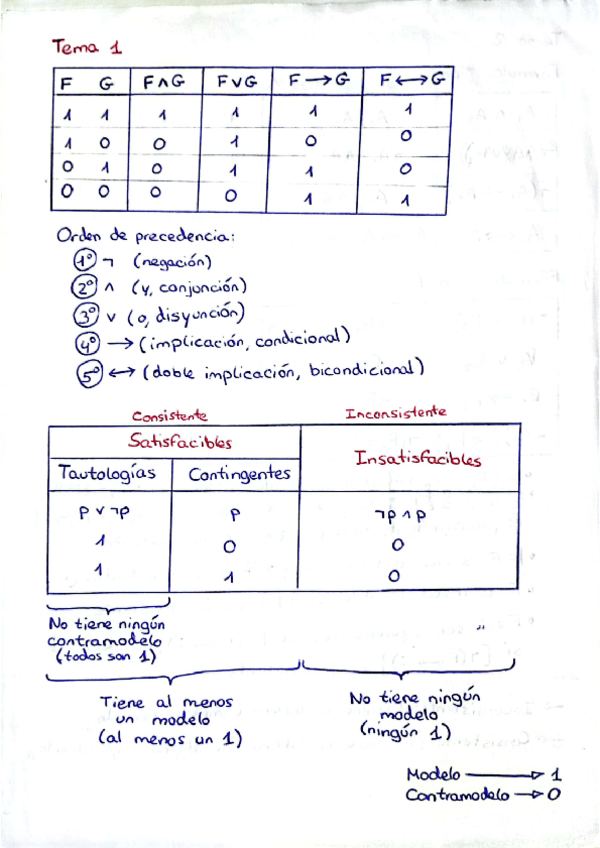 Tema 1
F G F∧G F∨G F→G F↔G
1 1 1 1 1 1
1 0 0 1 0 0
0 1 0 1 1 0
0 0 0 0 1 1
Orden de precedencia:
1º ¬ (negación)
2º ∧ (y, conjunción)
3º ∨ (o, disyunción)
4º → (implicación, condicional)
5º ↔ (doble implicación, bicondicional)
Consistente Inconsistente
Satisfacibles Insatisfacibles
Tautologías Contingentes
p ∨ ¬p p ¬p ∧ p
1 0 0
1 1 0
No tiene ningún
contramodelo
(todos son 1)
Tiene al menos
un modelo
(al menos un 1)
No tiene ningún
modelo
(ningún 1)
Modelo → 1
Contramodelo → 0